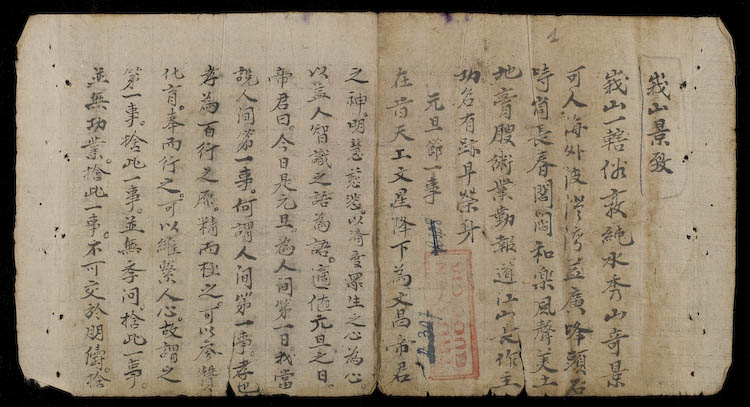 峩山景致
峩山一轄俗敦純水秀山奇景
可人海外波澄湾益廣峰頭石
時尚長春閭閻和樂風聲美土
地膏腴術業勤報道江山長作主
功名有跡早榮身
元旦節一事
在昔天工文星降下為文昌帝君
之神明慧慈悲以濟度羣生之心為心
以益人智識之語為語適值元旦之日
帝君曰今日是元旦為人间第一日我當
說人间第一事何謂人间第一事孝也
孝為百行之原精而極之可以参贊
化育奉而行之可以維繫人心故謂之
第一事捨此一事並無季问捨此一事
並無功業捨此一事不可交於朋儔捨